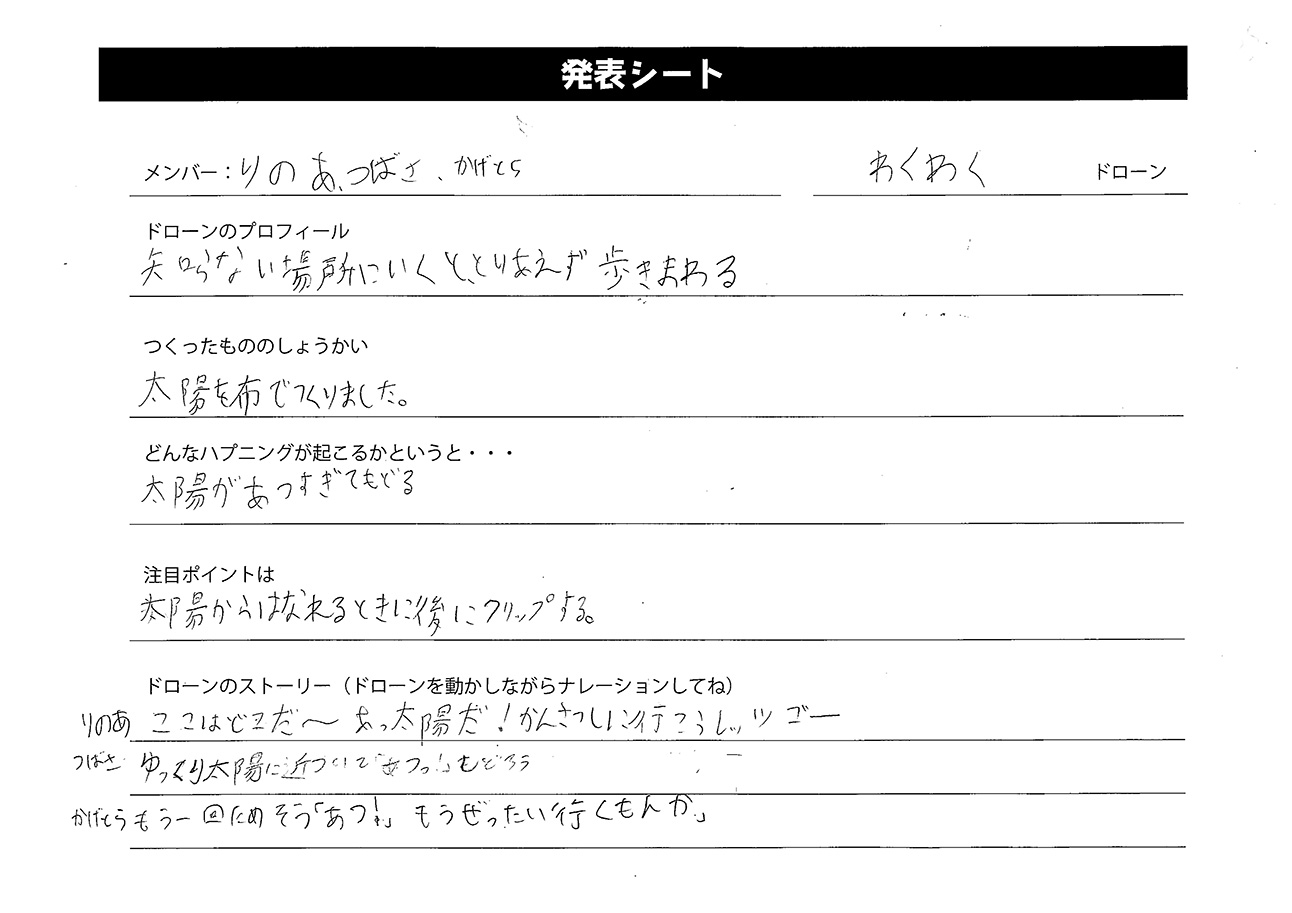 発表シート
メンバー：りのあ、つばさ、かげとら わくわく ドローン
ドローンのプロフィール
知らない場所にいくと、とりあえず歩きまわる
つくったもののしょうかい
太陽を布でつくりました。
どんなハプニングが起こるかというと・・・
太陽があつすぎてもどる
注目ポイントは
太陽からはなれるときに後にフリップする。
ドローンのストーリー（ドローンを動かしながらナレーションしてね）
りのあ ここはどこだ〜 あっ太陽だ！かんさつしに行こうレッツゴー
つばさ ゆっくり太陽に近づいて「あつっ！」もどろう
かげとら もう一回ためそう「あつ！」もうぜったい行くもんか」